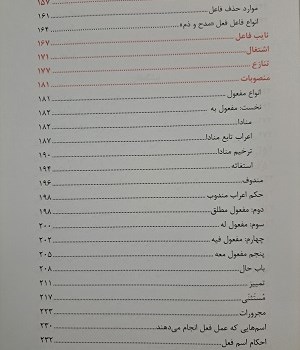 ۱۵۷
موارد حذف فاعل ۱۶۱
انواع فاعل فعل «مدح و ذم» ۱۶۲
نایب فاعل ۱۶۷
اشتغال ۱۷۱
تنازع ۱۷۷
منصوبات ۱۸۱
انواع مفعول ۱۸۱
نخست: مفعول به ۱۸۲
منادا ۱۸۲
اعراب تابع منادا ۱۸۷
ترخیم منادا ۱۹۰
استغاثه ۱۹۴
مندوف ۱۹۶
حکم اعراب مندوب ۱۹۸
دوم: مفعول مطلق ۱۹۸
سوم: مفعول له ۲۰۰
چهارم: مفعول فیه ۲۰۲
پنجم مفعول معه ۲۰۵
باب حال ۲۰۸
تمییز ۲۱۱
مُستَثنَی ۲۱۷
مجرورات ۲۲۳
اسم‌هایی که عمل فعل انجام می‌دهند ۲۳۰
احکام اسم فعل ۲۳۲